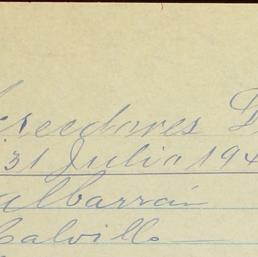 Acreedores D
31 Julio 194
Albarrán
Calvillo